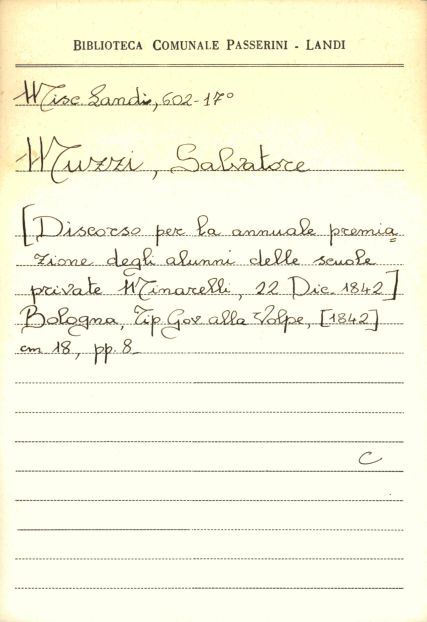 BIBLIOTECA COMUNALE PASSERINI - LANDI
Misc. Landi, 602-17°
Muzzi, Salvatore
[Discorso per la annuale premia=
zione degli alunni delle scuole
private Minarelli, 22 Dic. 1842]
Bologna, Tip. Gov. alla Volpe, [1842]
cm 18, pp. 8_
C